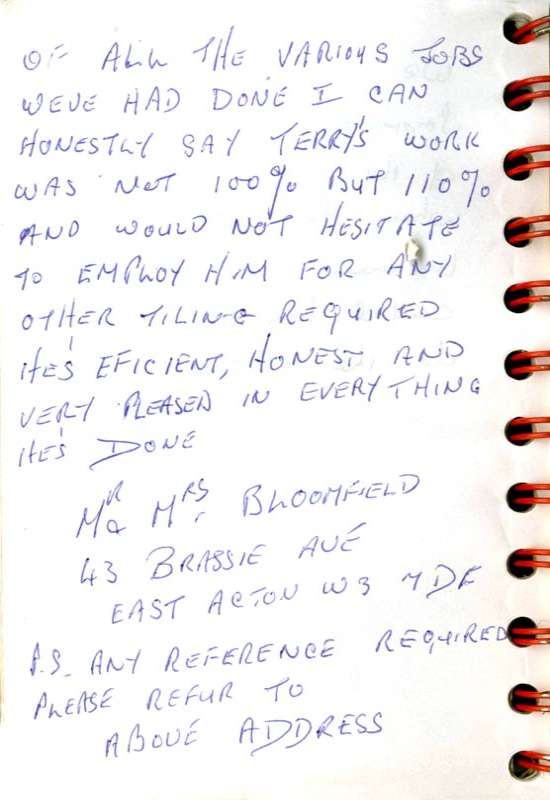 OF ALL THE VARIOUS JOBS
WEVE HAD DONE I CAN
HONESTLY SAY TERRY'S WORK
WAS NOT 100% BUT 110%
AND WOULD NOT HESITATE
TO EMPLOY HIM FOR ANY
OTHER TILING REQUIRED
HE'S EFICIENT, HONEST AND
VERY PLEASED IN EVERYTHING
HE'S DONE
MR & MRS BLOOMFIELD
43 BRASSIE AVE
EAST ACTON W3 7DF
P.S. ANY REFERENCE REQUIRED
PLEASE REFUR TO
ABOVE ADDRESS